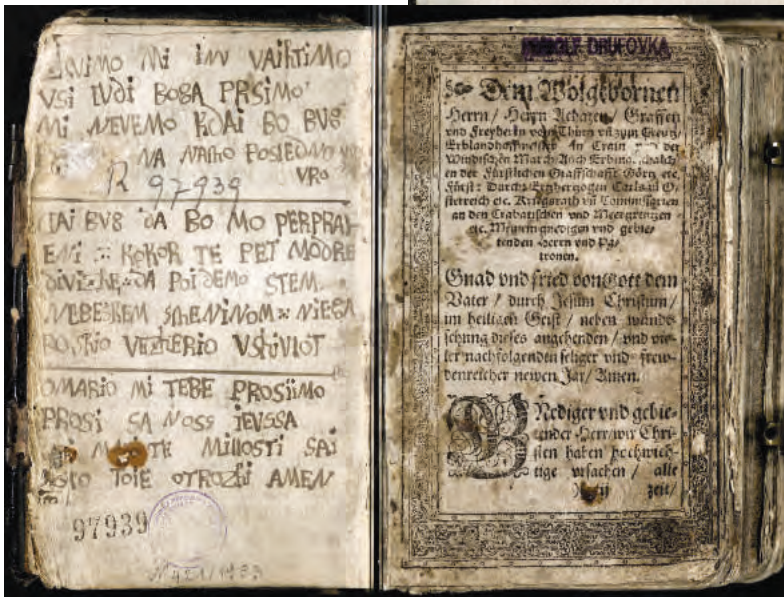 MI INU VAIHTIMO
VSI LVDI BOGA PRSIMO
MI NEVEMO KDAI BO BVG
NA NAMO POSLEDNO
VRO
R 97939
TAI BVG DA BO MO PERPRAV
ENI KOKOR TE PET MODRE
DIVIZHE DA POIDEMO STEM
NEBESKEM SHENINOM NIEGA
VEZHERIO VSHIVIOT
OMARIO MI TEBE PROSIIMO
PROSI SA NOSS IEVSSA
MILLOSTI SAI
TOIE OTROZHI AMEN
97939
No 421/1953
RUDOLF DRUFOVKA
Dem Wolgebornen
Herrn / Herrn Achazen / Graffen
vnd Freyherrn von Thurn vñ zum Creutz /
Erblandhoffmeister in Crain vnd der
Windischen March Auch Erbmarschalch
en der Fürstlichen Graffschafft Görtz etc.
Fürstl: Durch: Ertzhertzogen Carls zu O-
sterreich etc. Kriegsrath vñ Commissarien
an den Crabatischen vnd Meergrentzen
etc. Meinem gnedigen vnd gebie-
tenden Herrn vnd Pa-
tronen.
Gnad vnd fried von Gott dem
Vater / durch Jesum Christum /
im heiligen Geist / neben wündt-
schung dieses angehenden / vnd vie-
ler nachfolgenden seliger vnd frew-
denreicher newen Jar / Amen.
GNediger vnd gebie-
tender Herr / wir Chri-
sten haben hochwich-
tige vrsachen / alle
zeit /